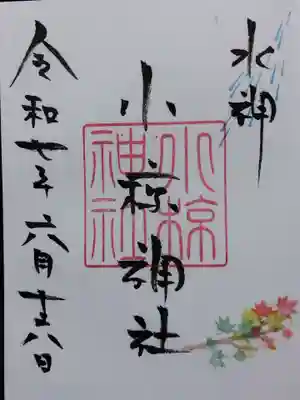 水神
小椋神社
令和七年六月十六日
小椋
神社